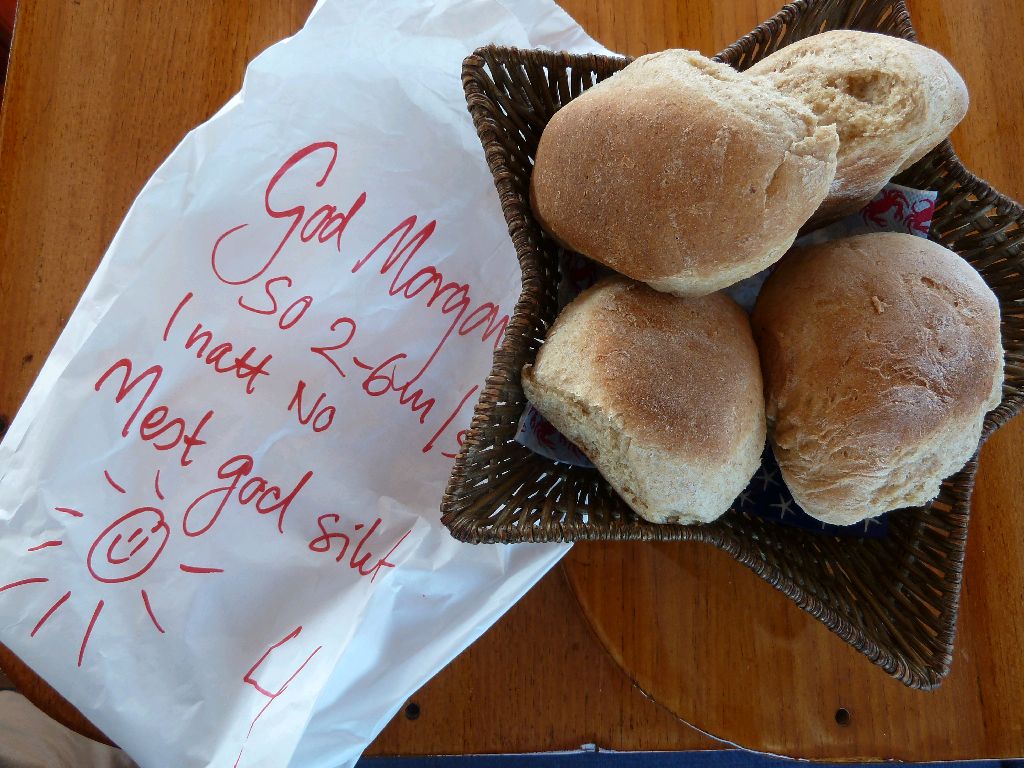 God Morgon
SO 2-6 m/s
I natt NO
Mest god sikt
4